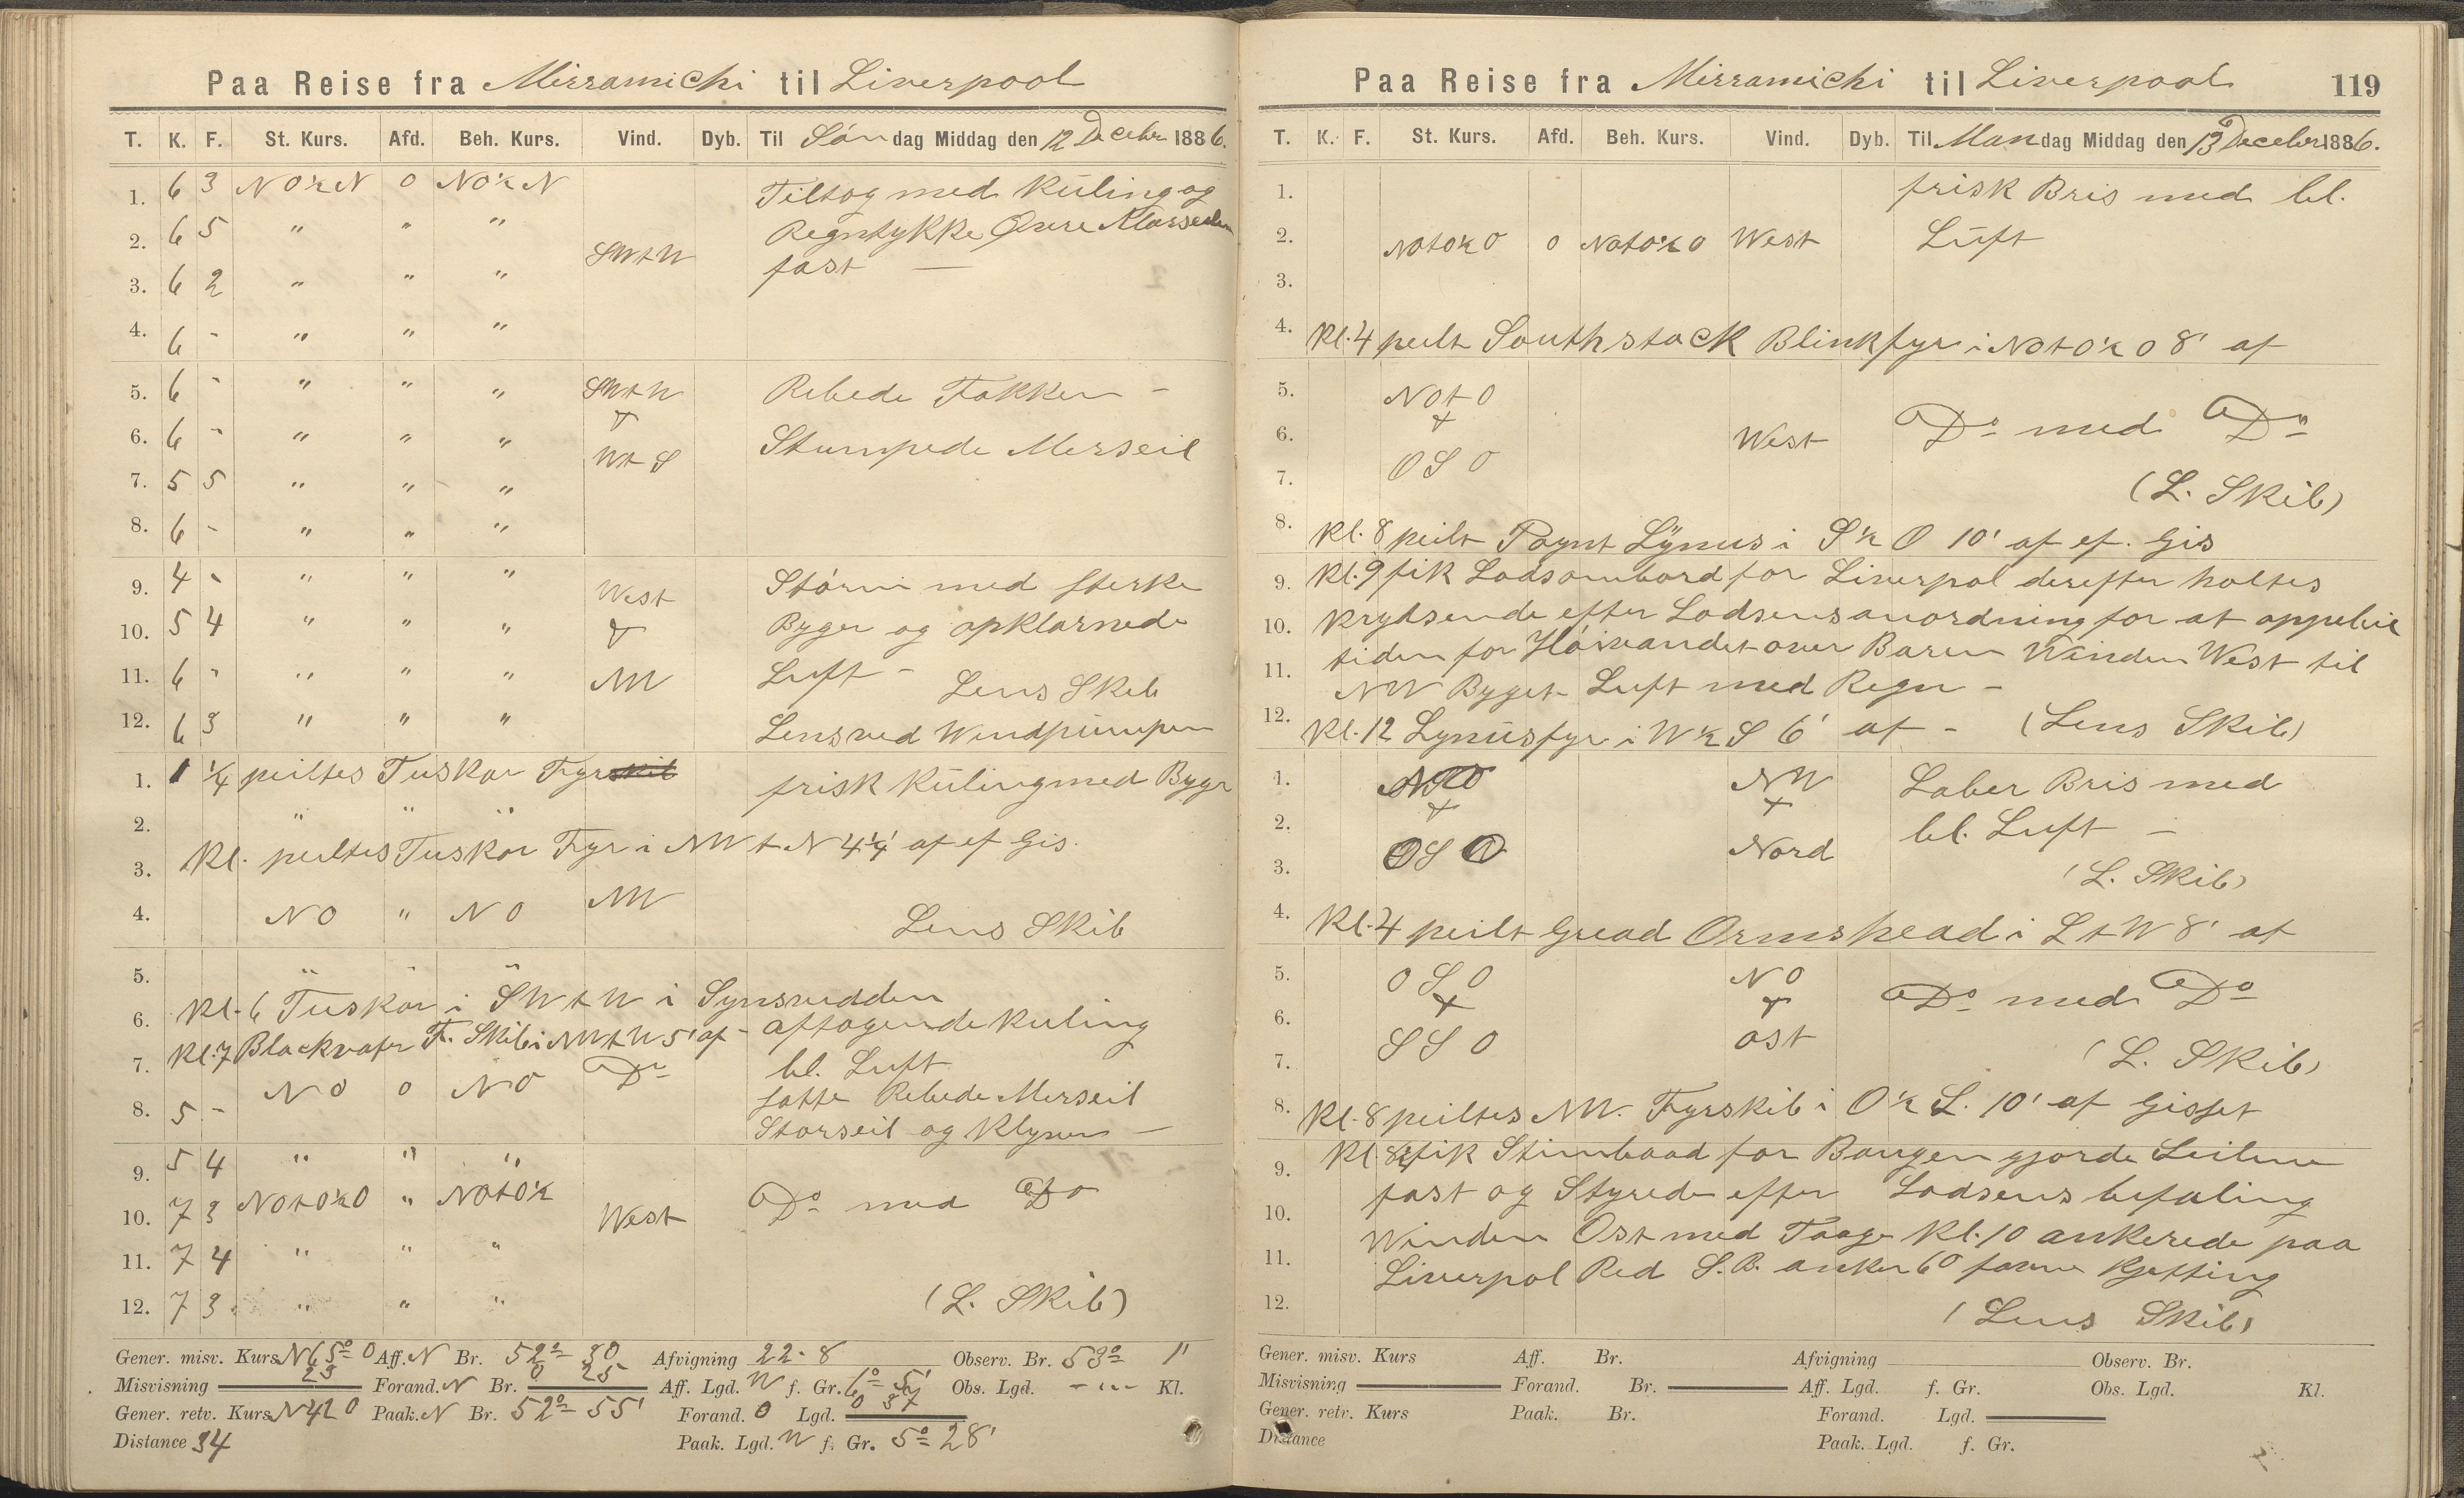 Paa Reise fra Mirramichi til Liverpool
T. K. F. St. Kurs. Afd. Beh. Kurs. Vind. Dyb. Til Søndag Middag den 12 Decebr 1886.
1. 6 3 NO½N 0 NO½N Tiltog med Kuling og
2. 6 5 " " " Regntykke Øvre Mersseilen
SWtW
3. 6 2 " " " fast —
4. 6 - " " "
5. 6 - " " " SWtW Rebede Fokken -
6. 6 - " " " WtS Stumpede Merseil
7. 5 5 " " "
8. 6 - " " "
9. 4 - " " " West Storm med sterke
10. 5 4 " " " Byger og opklarnede
11. 6 - " " " NW Luft - Lens Skib
12. 6 3 " " " Lens ved Windpumpen
1. 1 ¼ peiltes Tuskar Fyr frisk Kuling med Byger
2. " " "
Kl. peiltes Tuskar Fyr i NWtN 4¼' af ef Gis.
3.
4. NO " NO NW Lens Skib
5. " " "
Kl. 6 Tuskar i SWtW i Synsvidden
6. aftagende Kuling
Kl. 7 Blackvater F. Skib i NWtW 5' af -
7. NO 0 NO Do bl. Luft
8. 5 - satte Rebede Merseil
Storseil og Klyver —
9. 5 4 " " "
10. 7 3 NOtO½O " NOtO½ West Do med Do
11. 7 4 " " "
12. 7 3. " " " (L. Skib)
Gener. misv. Kurs N65°O Aff. N Br. 52° 30 Afvigning 22.8 Observ. Br. 53° 1'
Misvisning 23 Forand. N Br. 0 25 Aff. Lgd. W f. Gr. 6° 5' Obs. Lgd. - Kl.
Gener. retv. Kurs N42O Paak. N Br. 52° 55' Forand. O Lgd. 0 37
Distance 34 Paak. Lgd. W f. Gr. 5° 28'
Paa Reise fra Mirramichi til Liverpool 119
T. K. F. St. Kurs. Afd. Beh. Kurs. Vind. Dyb. Til Mandag Middag den 13 Decebr 1886.
1. frisk Bris med bl.
2. NOtO½O 0 NOtO½O West Luft
3.
4. Kl. 4 peilt Southstack Blinkfyr i NOtO½O 8' af
5. NOtO
6. West Do med Do
7. OSO (L. Skib)
8. Kl. 8 peilt Poynt Lynus i S½O 10' af ef. Gis
9. Kl. 9 fik Lods ombord for Liverpol derefter holtes
10. krydsende efter Lodsens anordning for at oppebie
11. tiden for Høivandet over Baren Winden West til
NW Byget Luft med Regn -
12. Kl. 12 Lynusfyr i W½S 6' af - (Lens Skib)
1. NW Laber Bris med
2. bl. Luft -
3. OSO Nord (L. Skib)
4. Kl. 4 peilt Gread Ormshead i StW 8' af
5. OSO NO
6. Do med Do
7. SSO ost (L. Skib)
8. Kl. 8 peiltes NW. Fyrskib i O½S. 10' af Gisset
9. Kl. 8½ fik Stimbaad for Bougen gjorde Seilene
10. fast og Styrede efter Lodsens befaling
Winden Ost med Taage Kl. 10 ankerede paa
11. Liverpol Red S.B. anker 60 favne Kjetting
12. (Lens Skib)
Gener. misv. Kurs Aff. Br. Afvigning Observ. Br.
Misvisning Forand. Br. Aff. Lgd. f. Gr. Obs. Lgd. Kl.
Gener. retv. Kurs Paak. Br. Forand. Lgd.
Distance Paak. Lgd. f. Gr.